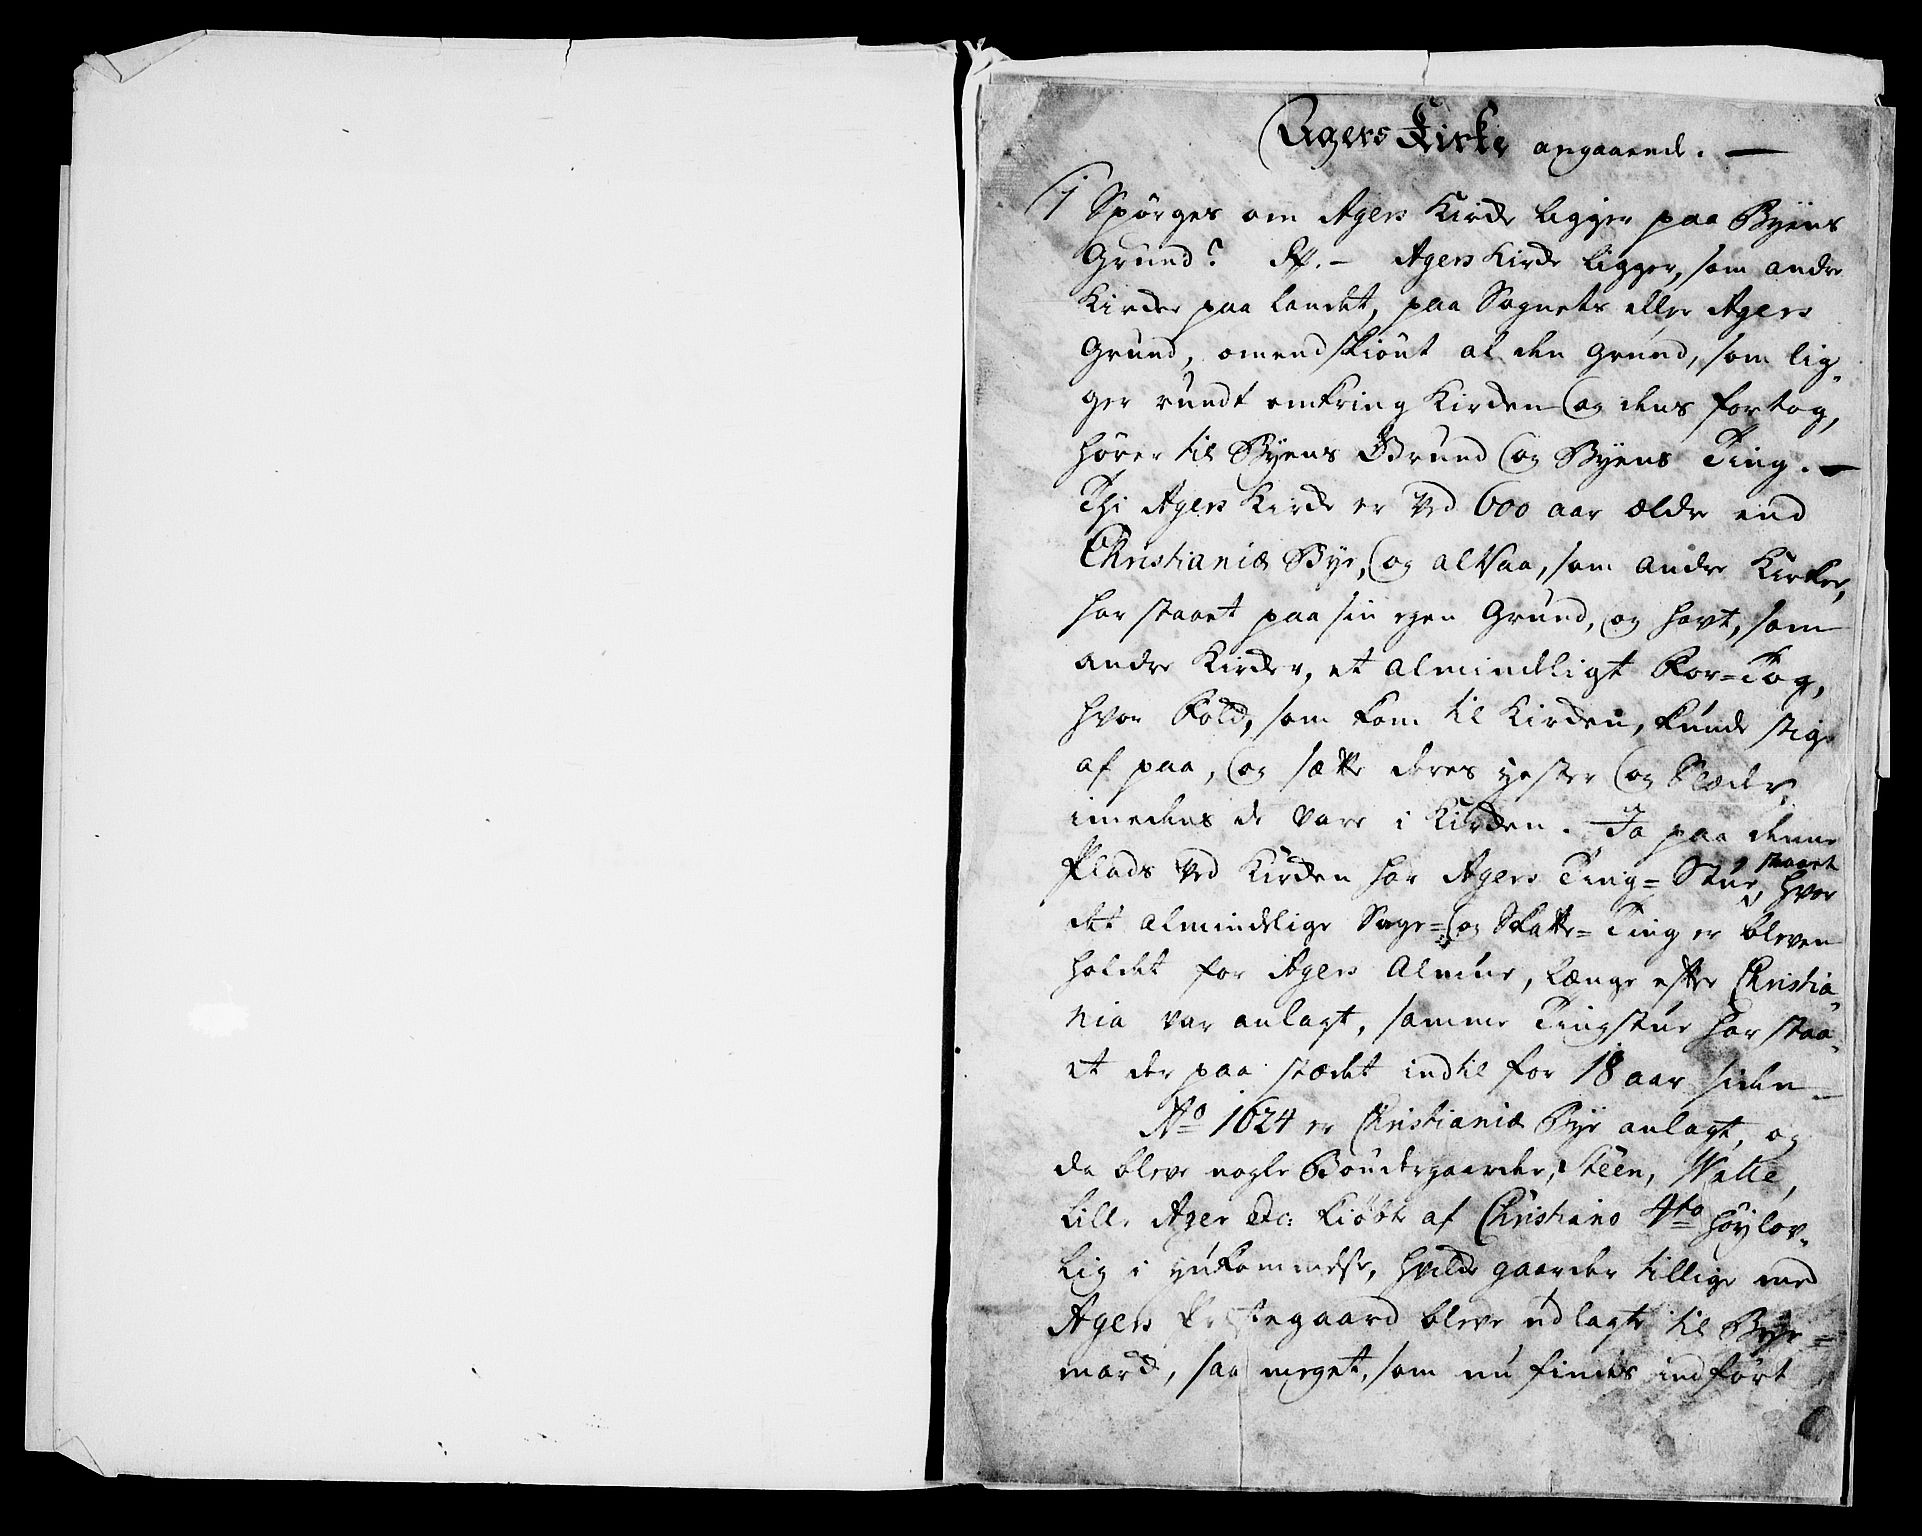 Agers Kirke angaaende. —
1 Spørges om Agers Kirche ligger paa Byens
Grund? Rp. — Agers Kirche ligger, som andre
Kircher paa Landet, paa Sognets eller Agers
Grund, omendskiønt al den Grund, som lig-
ger rundt omkring Kirchen og dens fortog,
hører til Byens Grund og Byens Ting. —
Thi Agers Kirche er ved 600 aar ældre end
Christianiæ Bye, og altsaa, som andre Kirker,
har staaet paa sin egen Grund, og havt, som
andre Kircher, et almindeligt For=Tog,
hvor Folch, som kom til Kirchen, kunde stige
af paa, og sætte deres Hester og Slæder,
imedens de vare i Kirchen. Ja paa denne
Plads ved Kirchen har Agers Ting=Stue staaet, hvor
det almindelige Sage= og Skatte=Ting er bleven
holdet for Agers Almue, længe efter Christia-
nia var anlagt, samme Tingstue har staa-
et der paa stædet indtil for 18 aar siden
Ao 1624 er Christianiæ Bye anlagt, og
da bleve nogle Bøndergaarder, Steen, Valle,
Lille Ager etc: kiøbte af Christiano 4to Høylov-
lig i hukommelse, hvilche gaarder tillige med
Agers Præstegaard bleve udlagte til Bye=
march, saa meget, som nu findes indført